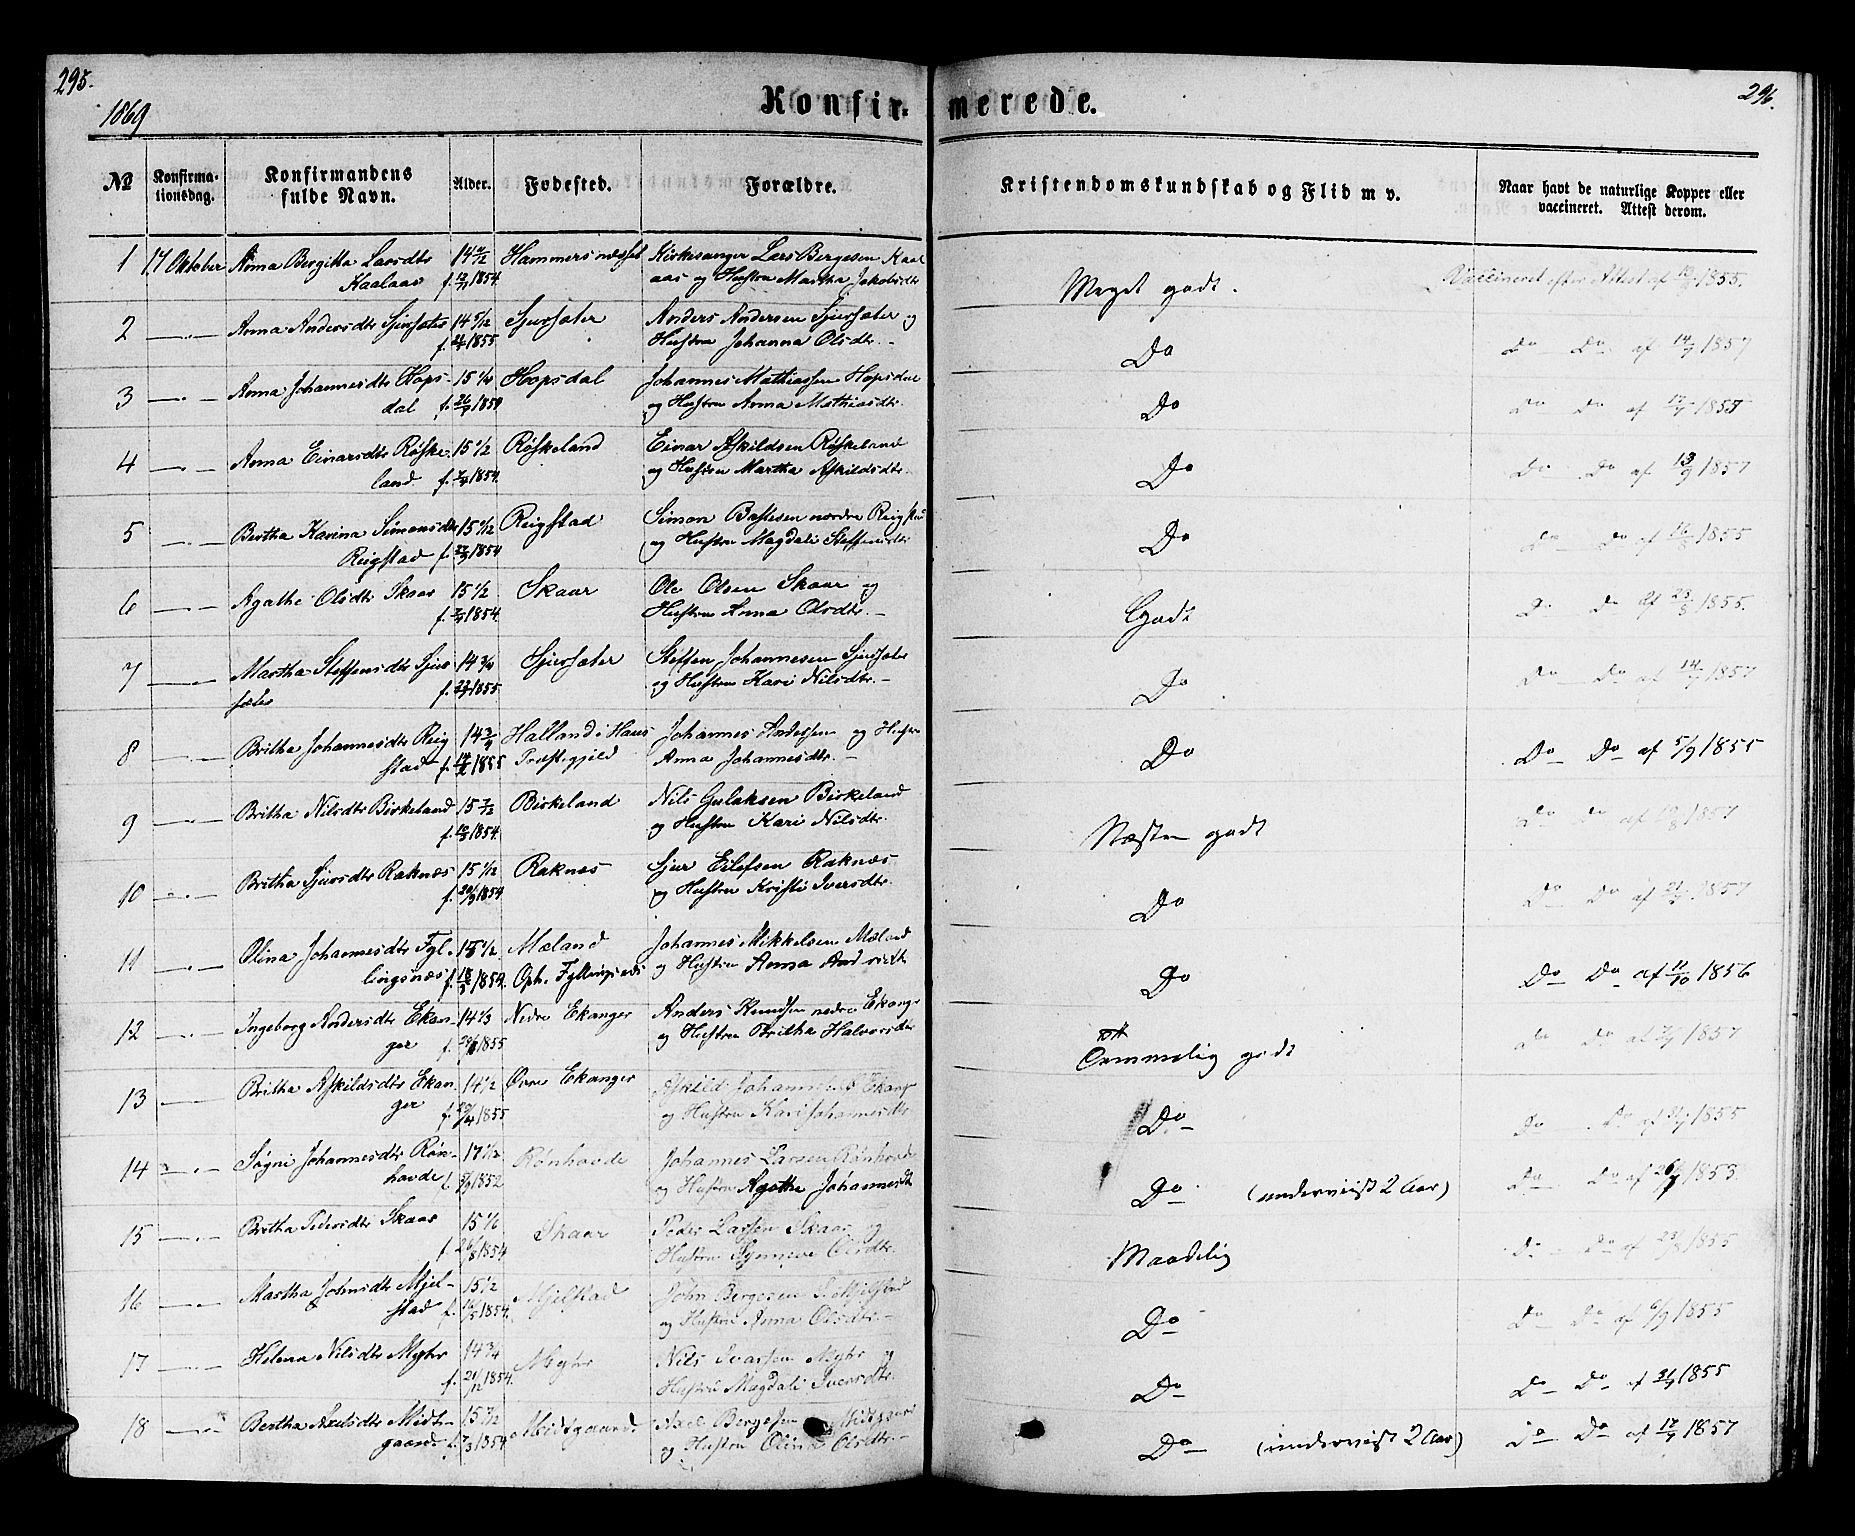 295.
1869
Konfir-
merede.
296.
No
Konfirma-
tionsdag.
Konfirmandens
fulde Navn.
Alder.
Fødested.
Forældre.
Kristendomskundskab og Flid m v.
Naar havt de naturlige Kopper eller
vaccineret. Attest derom.
1 17 Oktober Anna Bergitha Larsdtr Hammersnæsset Kirkesanger Lars Bergesen Kaal
Kaalaas 1854 aas og Hustru Martha Jakobsdtr
Meget godt. Vaccineret efter Attest af 1855.
2 Anna Andersdtr Sjursæter 14 5/12 Sjursæter Anders Andersen Sjursæter og
1855 Hustru Johanna Olsdtr.
Do Do Do af 14/7 1857
3 Anna Johannesdtr Hops- Hopsdal Johannes Mathiassen Hopsdal
dal og Hustru Anna Mathiasdtr.
Do Do Do af
4 Anna Einarsdtr Røske- 15 1/2 Røskeland Einar Askildsen Røskeland
land f. 1854. og Hustru Martha Askildsdtr.
Do Do Do af 13/9 1857
5 Bertha Karina Simonsdtr Reigstad Simon Bastesen nordre Reigstad
Reigstad f. 1854 og Hustru Magdali Steffensdtr
Do Do Do af 1855
6 Agathe Olsdtr Skaar 15 1/2 Skaar Ole Olsen Skaar og
f. 1854. Hustru Anna Olsdtr.
Godt Do Do af 1855.
7 Martha Steffensdtr Sjur Sjursæter Steffen Johannesen Sjursæter
sæter f. 1855. og Hustru Kari Nilsdtr.
Do Do Do af 14/7 1857
8 Britha Johannesdtr Reig Halland i Haus Johannes og Hustru
stad 1855 Præstegjeld Anna Johannesdtr.
Do Do Do af 5/9 1855
9 Britha Nilsdtr Birkeland Birkeland Nils Gulaksen Birkeland
f. 1854. og Hustru Kari Nilsdtr.
Næsten godt Do Do af 1857
10 Britha Sjursdtr Raknæs 15 1/12 Raknæs Sjur Eilefsen Raknæs
f. 20/9 1854 og Hustru Kristi Iversdtr.
Do Do Do af 1857
11 Olina Johannesdtr Fyl- 15 1/2. Mæland Johannes Mikkelsen Mæland
lingsnæs f. 1854. Oph. Fyllingsnæs og Hustru Anna
Do Do Do af 11/10 1856
12 Ingeborg Andersdtr Ekan- 14 1/3 Nedre Ekanger Anders Knudsen nedre Ekanger
ger f. 1855 og Hustru Britha Halvorsdtr
Temmelig godt Do af 1857
13 Britha Askildsdtr Ekan- 14 1/2 Øvre Ekanger Askild Johannesen Ekang
ger f. 20/4 1855 og Hustru Kari Johannesdtr
Do Do Do af 1855
14 Søgni Johannesdtr Røn- 17 1/2 Rønhovde Johannes Larsen Rønhovde
hovde 1852 og Hustru Agatha Johannesdt
Do (underviist 2 Aar) Do Do af 1853
15 Britha Pedersdtr Skaar 15 1/6 Skaar Peder Larsen Skaar og
f. 26/8 1854 Hustru Synneve Olsdtr.
Maadelig Do Do af 23/8 1855
16 Martha Johnsdtr Mjel- 15 1/2 Mjelstad John Bergesen Mjelstad
stad f. 16/5 1854. og Hustru Anna Olsdtr.
Do Do Do af 6/9 1855
17 Helena Nilsdtr Myhr 14 3/4 Myhr Nils Ivarsen Myhr og
f. 21/12 1854. Hustru Magdali Iversdtr.
Do Do Do af 1855
18 Bertha Axelsdtr Midt- 15 7/12 Midtgaard Axel Bergesen Midtgaard
gaard f. 7/3 1854 og Hustru Olina Olsdtr.
Do (underviist 2 Aar) Do Do af 17/7 1857